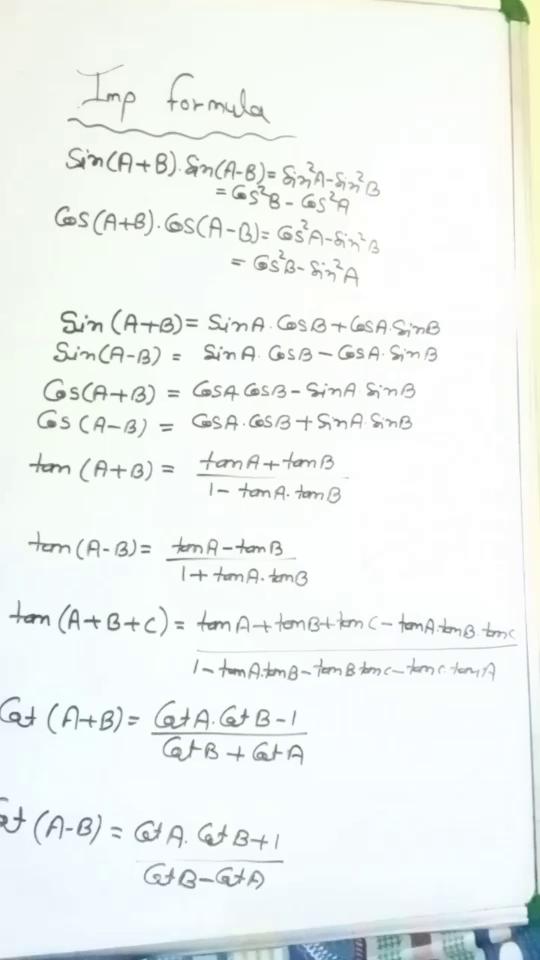 Imp formula
Sin(A+B).Sin(A-B)= Sin²A-Sin²B
= Cos²B - Cos²A
Cos(A+B).Cos(A-B)= Cos²A-Sin²B
= Cos²B-Sin²A
Sin (A+B)= SinA.CosB+CosA.SinB
Sin(A-B) = SinA.CosB-CosA.SinB
Cos(A+B) = CosA CosB-SinA SinB
Cos (A-B) = CosA.CosB+SinA SinB
tan (A+B) = tanA+tanB
1- tanA.tanB
tan(A-B)= tanA-tanB
1+ tanA.tanB
tan (A+B+C)= tanA+tanB+tanC-tanA.tanB.tanC
1-tanA.tanB-tanB tanC-tanC.tanA
Cot (A+B)= CotA.CotB-1
CotB+CotA
Cot (A-B) = CotA.CotB+1
CotB-CotA